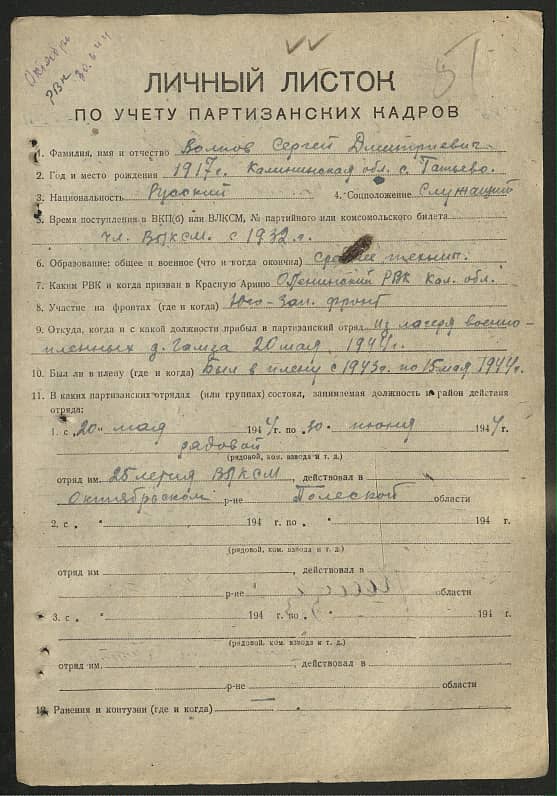 Октябрь
РВК 30.6.44
51
ЛИЧНЫЙ ЛИСТОК
ПО УЧЕТУ ПАРТИЗАНСКИХ КАДРОВ
1. Фамилия, имя и отчество Волков Сергей Дмитриевич
2. Год и место рождения 1917 г. Калининская обл. с. Татьево.
3. Национальность Русский 4. Соцположение Служащий
5. Время поступления в ВКП(б) или ВЛКСМ, № партийного или комсомольского билета
чл. ВЛКСМ. с 1932 г.
6. Образование: общее и военное (что и когда окончил) Среднее технич.
7. Каким РВК и когда призван в Красную Армию Оленинский РВК Кал. обл.
8. Участие на фронтах (где и когда) Юго-Зап. фронт
9. Откуда, когда и с какой должности прибыл в партизанский отряд из лагеря военно-
пленных д. Гамза 20 мая 1944 г.
10. Был ли в плену (где и когда) Был в плену с 1943 г. по 15 мая 1944 г.
11. В каких партизанских отрядах (или группах) состоял, занимаемая должность и район действия
отряда:
1. с „20" мая 1944 г. по „30" июня 1944 г.
рядовой
(рядовой, ком. взвода и т. д.)
отряд им. 25 летия ВЛКСМ, действовал в
Октябрьском р-не Полеской области
2. с „ " 194 г. по „ " 194 г.
(рядовой, ком. взвода и т. д.)
отряд им , действовал в
р-не области
3. с „ " 194 г. по „ " 194 г.
(рядовой, ком. взвода и т. д.)
отряд им. , действовал в
р-не области
12. Ранения и контузии (где и когда) —